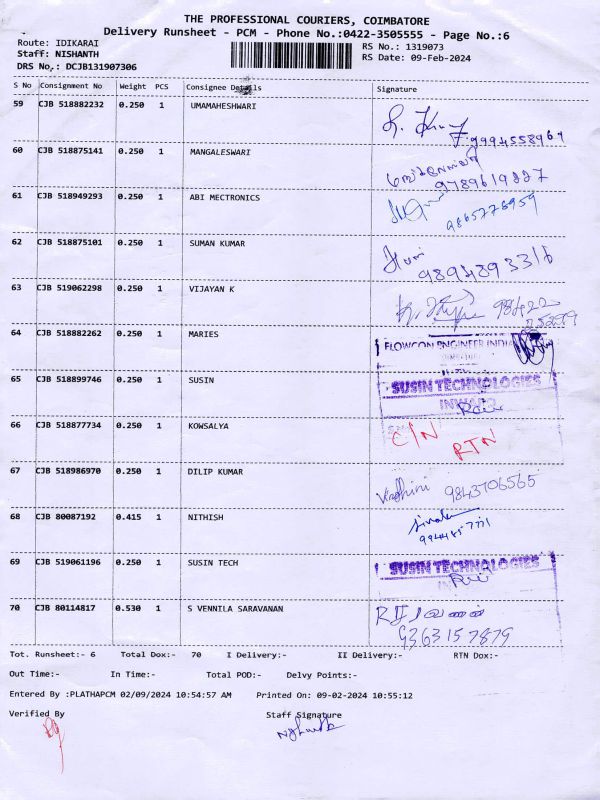 THE PROFESSIONAL COURIERS, COIMBATORE
Delivery Runsheet - PCM - Phone No.:0422-3505555 - Page No.:6
Route: IDIKARAI
RS No.: 1319073
Staff: NISHANTH
RS Date: 09-Feb-2024
DRS No.: DCJB131907306
S No Consignment No Weight PCS Consignee Details Signature
59 CJB 518882232 0.250 1 UMAMAHESHWARI
60 CJB 518875141 0.250 1 MANGALESWARI
9789619227
61 CJB 518949293 0.250 1 ABI MECTRONICS
9865776959
62 CJB 518875101 0.250 1 SUMAN KUMAR
9894893316
63 CJB 519062298 0.250 1 VIJAYAN K
98422
64 CJB 518882262 0.250 1 MARIES
FLOWCON ENGINEER INDIA
65 CJB 518899746 0.250 1 SUSIN
SUSIN TECHNOLOGIES
INWARD
66 CJB 518877734 0.250 1 KOWSALYA C/N
RTN
67 CJB 518986970 0.250 1 DILIP KUMAR
9843706565
68 CJB 80087192 0.415 1 NITHISH
69 CJB 519061196 0.250 1 SUSIN TECH SUSIN TECHNOLOGIES
70 CJB 80114817 0.530 1 S VENNILA SARAVANAN
9363157879
Tot. Runsheet:- 6 Total Dox:- 70 I Delivery:- II Delivery:- RTN Dox:-
Out Time:- In Time:- Total POD:- Delvy Points:-
Entered By :PLATHAPCM 02/09/2024 10:54:57 AM Printed On: 09-02-2024 10:55:12
Verified By Staff Signature